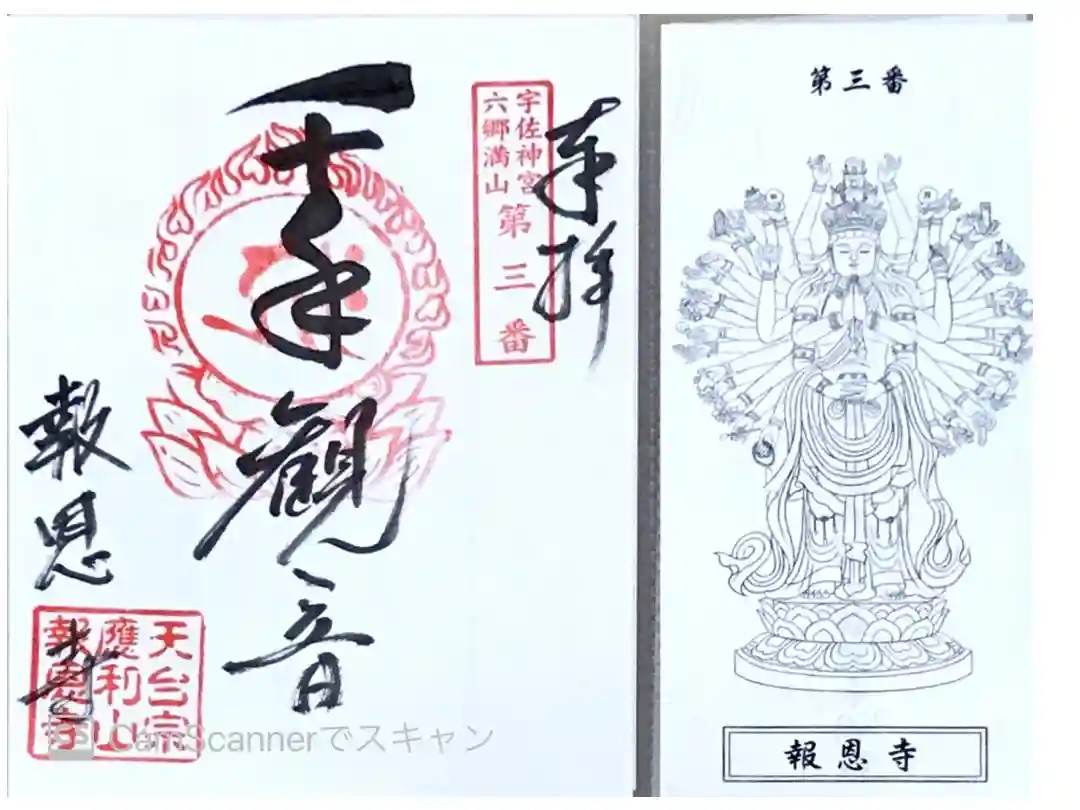 奉拝
宇佐神宮
六郷満山
第三番
千手觀音
報恩寺
天台宗
應利山
報恩寺
CS CamScannerでスキャン
第三番
報恩寺